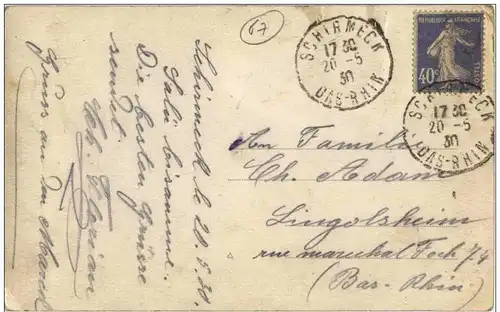 67
SCHIRMECK
17 30
20 - 5
30
BAS-RHIN
REPUBLIQUE FRANÇAISE
40c
POSTES
SCHIRMECK
17 30
20 - 5
30
BAS-RHIN
Schirmeck le 20.5.30.
Salü bisamme.
Die besten Grüsse
sendet
Florian
Gruss an
An Familie
Ch. Adam
Lingolsheim
rue marechal Foch 74
(Bas-Rhin)